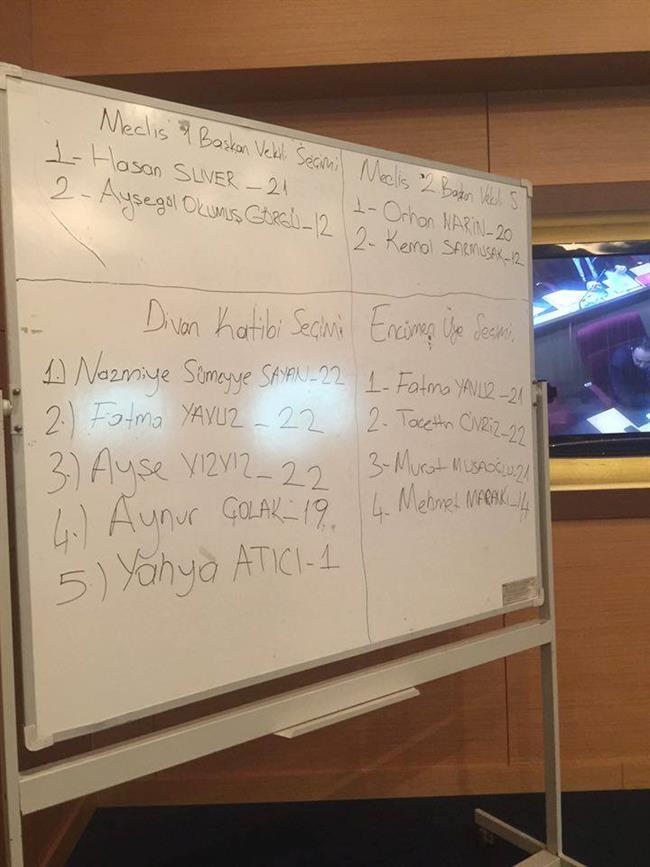 Meclis 1 Başkan Vekili Seçimi
1- Hasan SUVER - 21
2- Ayşegül OKUMUŞ GÖRGÜ - 12
Meclis 2 Başkan Vekili S
1- Orhan NARİN - 20
2- Kemal SARMUSAK - 12
Divan Katibi Seçimi
1.) Nazmiye Sümeyye SAYAN - 22
2.) Fatma YAVUZ - 22
3.) Ayşe YIZYIZ - 22
4.) Aynur ÇOLAK - 19
5.) Yahya ATICI - 1
Encümen Üye Seçimi.
1- Fatma YAVUZ - 21
2- Tacettin CİVRİZ - 22
3- Murat MUSAOĞLU - 21
4- Mehmet MARANKİ - 14